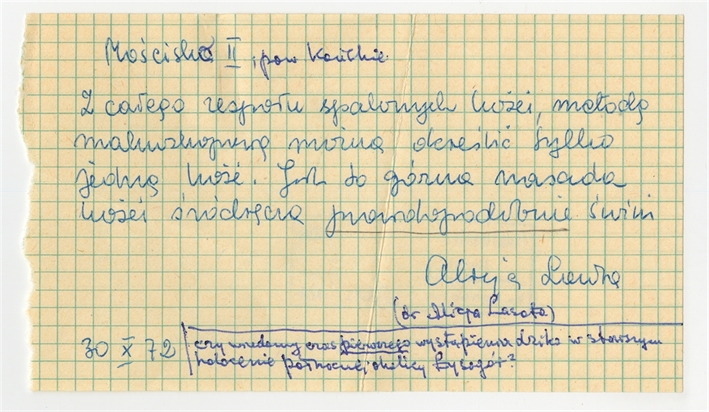 Mościska II, pow Końskie.
Z całego zespołu spalonych kości, metodą
makroskopową można określić tylko
jedną kość. Jest to górna nasada
kości śródręcza prawdopodobnie świni
Alicja Lasota
(dr Alicja Lasota)
30 X 72
czy wiadomy czas pierwszego wystąpienia dzika w starszym
holocenie północnej okolicy Łysogór?